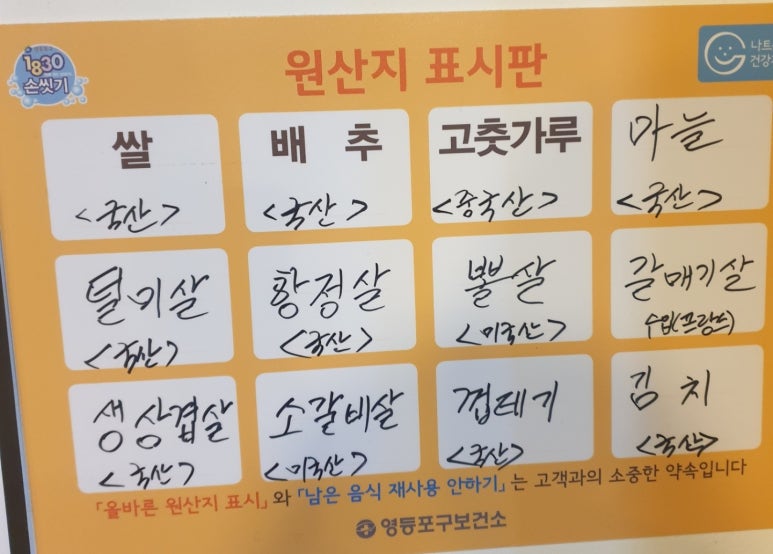 1830
손씻기
원산지 표시판
나트
건강
쌀
<국산>
배 추
<국산>
고춧가루
<중국산>
마늘
<국산>
덜미살
<국산>
항정살
<국산>
뽈살
<미국산>
갈매기살
수입(프랑스)
생삼겹살
<국산>
소갈비살
<미국산>
껍데기
<국산>
김 치
<국산>
「올바른 원산지 표시」와 「남은 음식 재사용 안하기」는 고객과의 소중한 약속입니다
영등포구보건소